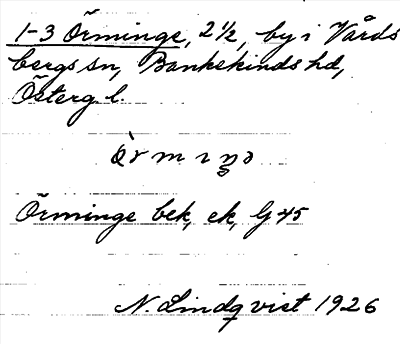 1-3 Örminge, 2½, by i Vårds
bergs sn, Bankekinds hd,
Österg l.
Örminge bek, ek, G 45
N. Lindqvist 1926